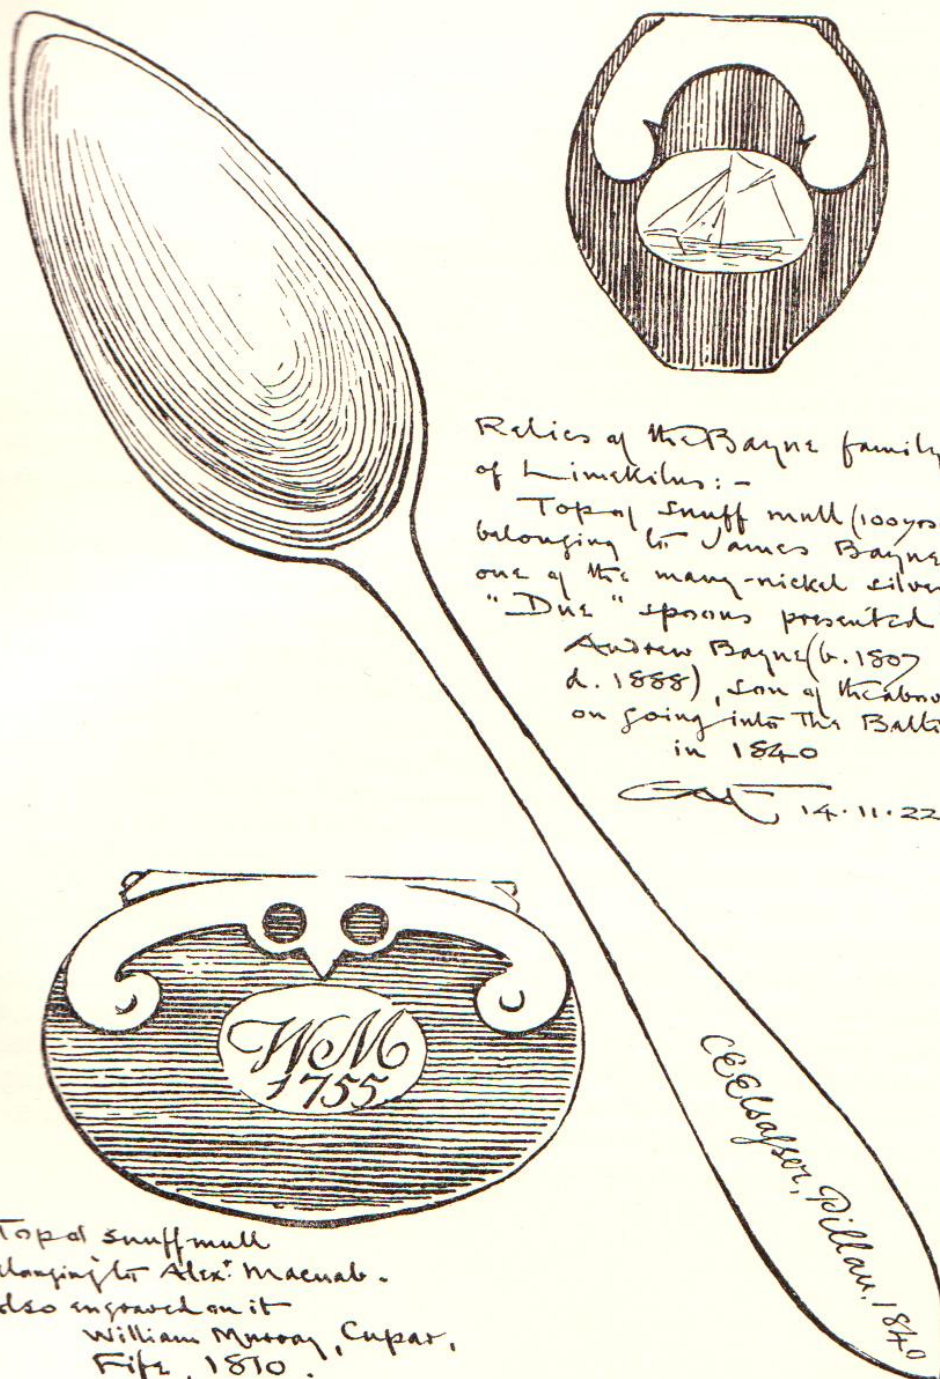 Relics of the Bayne family
of Limekilns:-
Top of snuff mull (100 yrs
belonging to James Bayne
one of the many-nickel silver
"Due" spoons presented
Andrew Bayne (b. 1807
d. 1888), son of the above
on going into The Balti
in 1840
14.11.22
WM
1755
CEElsasser, Pillau, 1840
Top of snuff mull
elonging to Alexr. Macnab.
also engraved on it
William Murray, Cupar,
Fife, 1810.